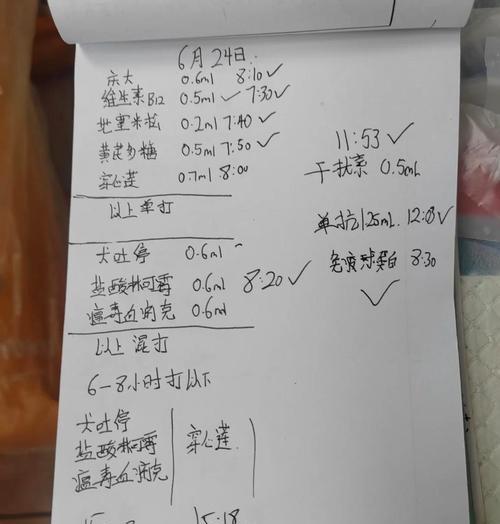 6月24日
庆大 0.6ml 8:10 ✓
维生素B12 0.5ml ✓ 7:30 ✓
地塞米松 0.2ml 7:40 ✓
黄芪多糖 0.5ml 7:50 ✓
穿心莲 0.7ml 8:00
以上单打
犬吐停 0.6ml
盐酸林可霉 0.6ml 8:20 ✓
瘟毒血消克 0.6ml
以上混打
6-8小时打以下
犬吐停
盐酸林可霉 穿心莲
瘟毒血消克
15:18
11:53 ✓
干扰素 0.5mL
单抗 1.25mL 12:03 ✓
免疫球蛋白 8:30
✓